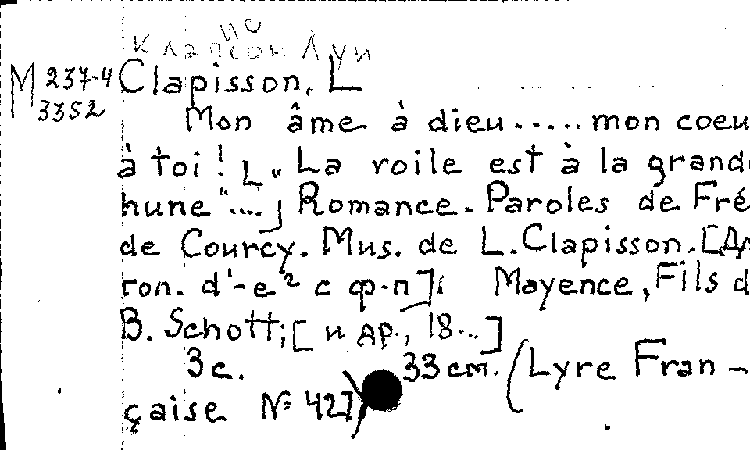 Клаписсон Луи
М 237-4 Clapisson, L
3352
Mon âme à dieu..... mon coeu
à toi! [„La voile est à la grand
hune"....] Romance. Paroles de Fré
de Courcy. Mus. de L. Clapisson. [Дл
ron. d'-e² с ф-п]; Mayence, Fils d
B. Schott; [и др., 18..]
3 c. 33 cm. (Lyre Fran-
çaise № 427)